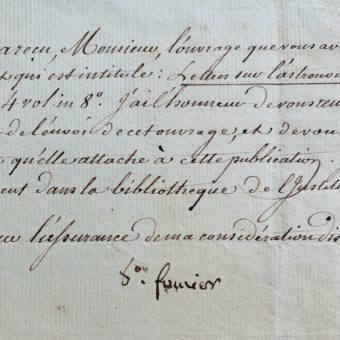 a reçu, Monsieur, l'ouvrage que vous av
qui est intitulé: Lettres sur l'astrono
4 vol. in 8°. J'ai l'honneur de vous re
de l'envoi de cet ouvrage, et de vou
qu'elle attache à cette publication.
ent dans la bibliothèque de l'Institu
l'assurance de ma considération dis
B.on fourier